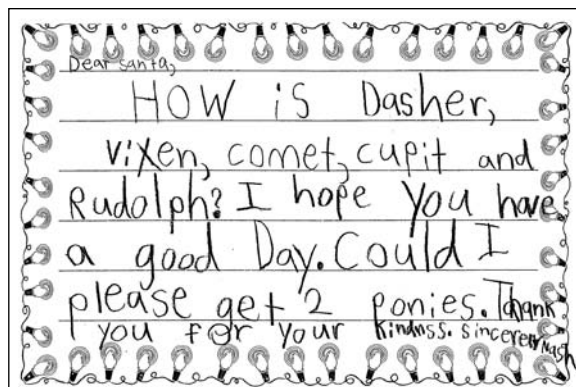 Dear santa,
HOW is Dasher,
vixen, comet, cupit and
Rudolph? I hope you have
a good Day. Could I
please get 2 ponies. Thank
you for your kindnss. sincerely Nash